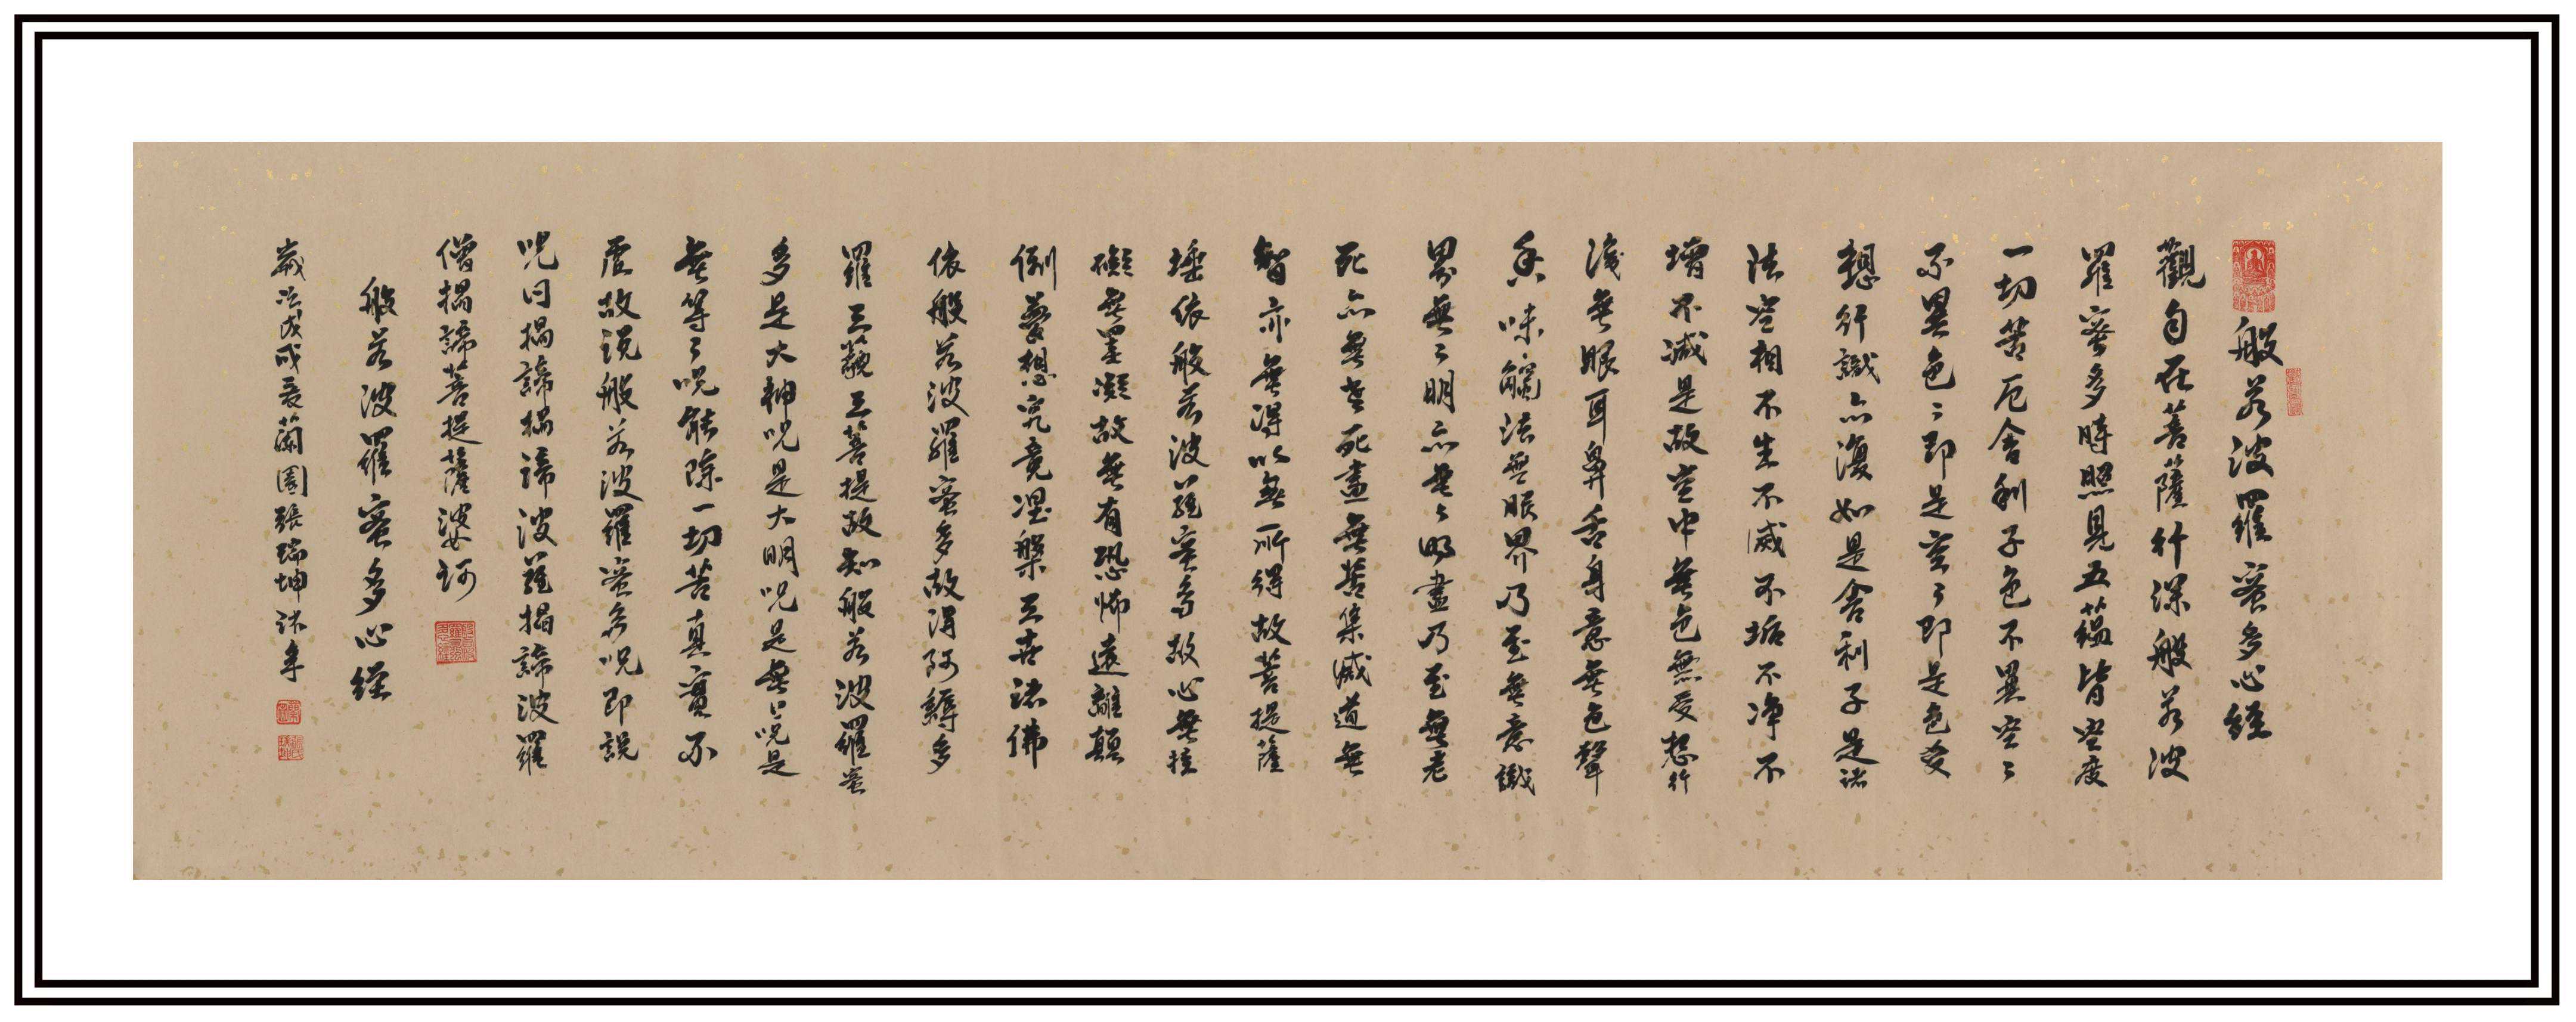 般若波羅蜜多心經
觀自在菩薩行深般若波
羅蜜多時照見五蘊皆空度
一切苦厄舍利子色不異空〻
不異色〻即是空〻即是色受
想行識亦復如是舍利子是諸
法空相不生不滅不垢不淨不
增不減是故空中無色無受想行
識無眼耳鼻舌身意無色聲
香味觸法無眼界乃至無意識
界無〻明亦無〻明盡乃至無老
死亦無老死盡無苦集滅道無
智亦無得以無所得故菩提薩
埵依般若波羅蜜多故心無挂
礙無罣礙故無有恐怖遠離顛
倒夢想究竟涅槃三世諸佛
依般若波羅蜜多故得阿耨多
羅三藐三菩提故知般若波羅蜜
多是大神咒是大明咒是無上咒是
無等〻咒能除一切苦真實不
虛故說般若波羅蜜多咒即說
咒曰揭諦揭諦波羅揭諦波羅
僧揭諦菩提薩婆訶
般若波羅蜜多心經
歲次戊戌夏蘭園張瑞坤沐手